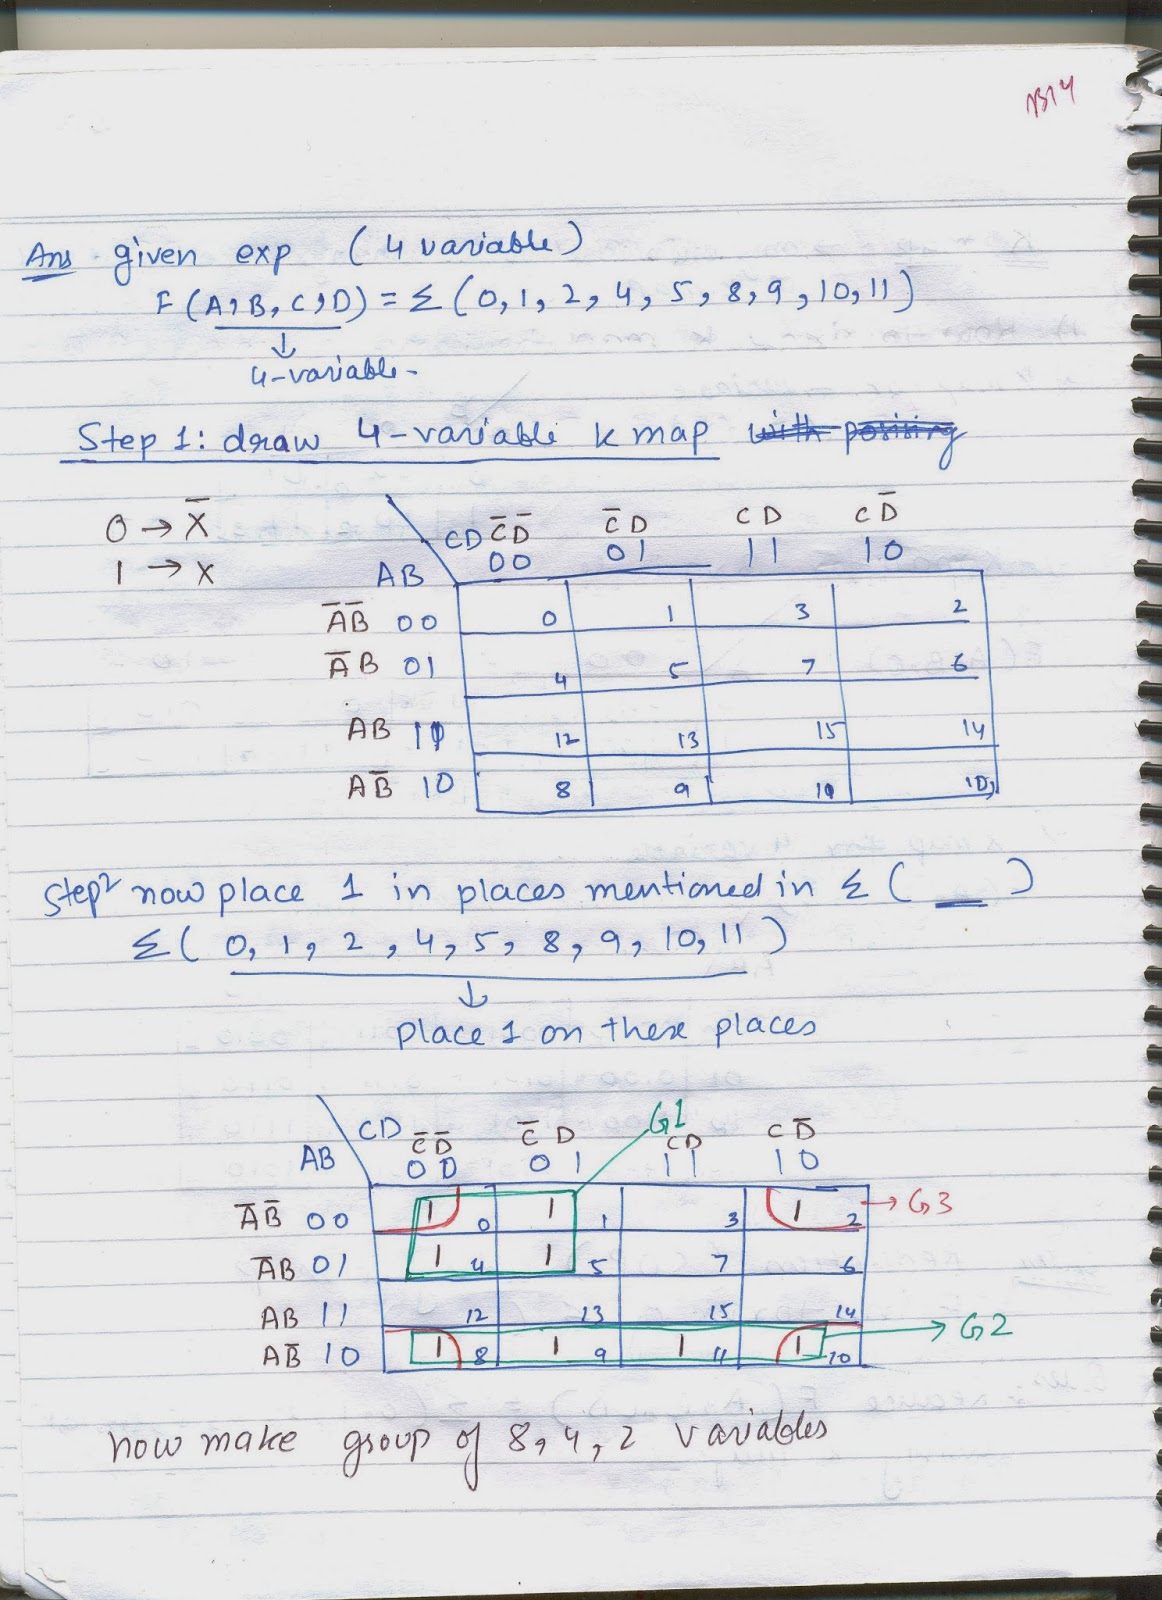 B14
Ans given exp (4 variable)
F(A,B,C,D) = Σ(0,1,2,4,5,8,9,10,11)
↓
4-variable-
Step 1: draw 4-variable k map with
0 → X̅
1 → X
CD C̅D̅ C̅D CD CD̅
AB 00 01 11 10
A̅B̅ 00 0 1 3 2
A̅B 01 4 5 7 6
AB 11 12 13 15 14
AB̅ 10 8 9 11 10
Step2 now place 1 in places mentioned in Σ( __ )
Σ( 0, 1, 2, 4, 5, 8, 9, 10, 11 )
↓
place 1 on these places
G1
CD C̅D̅ C̅D CD CD̅
AB 00 01 11 10
A̅B̅ 00 1 0 1 1 3 1 2 → G3
A̅B 01 1 4 1 5 7 6
AB 11 12 13 15 14
AB̅ 10 1 8 1 9 1 11 1 10 → G2
now make group of 8, 4, 2 variables